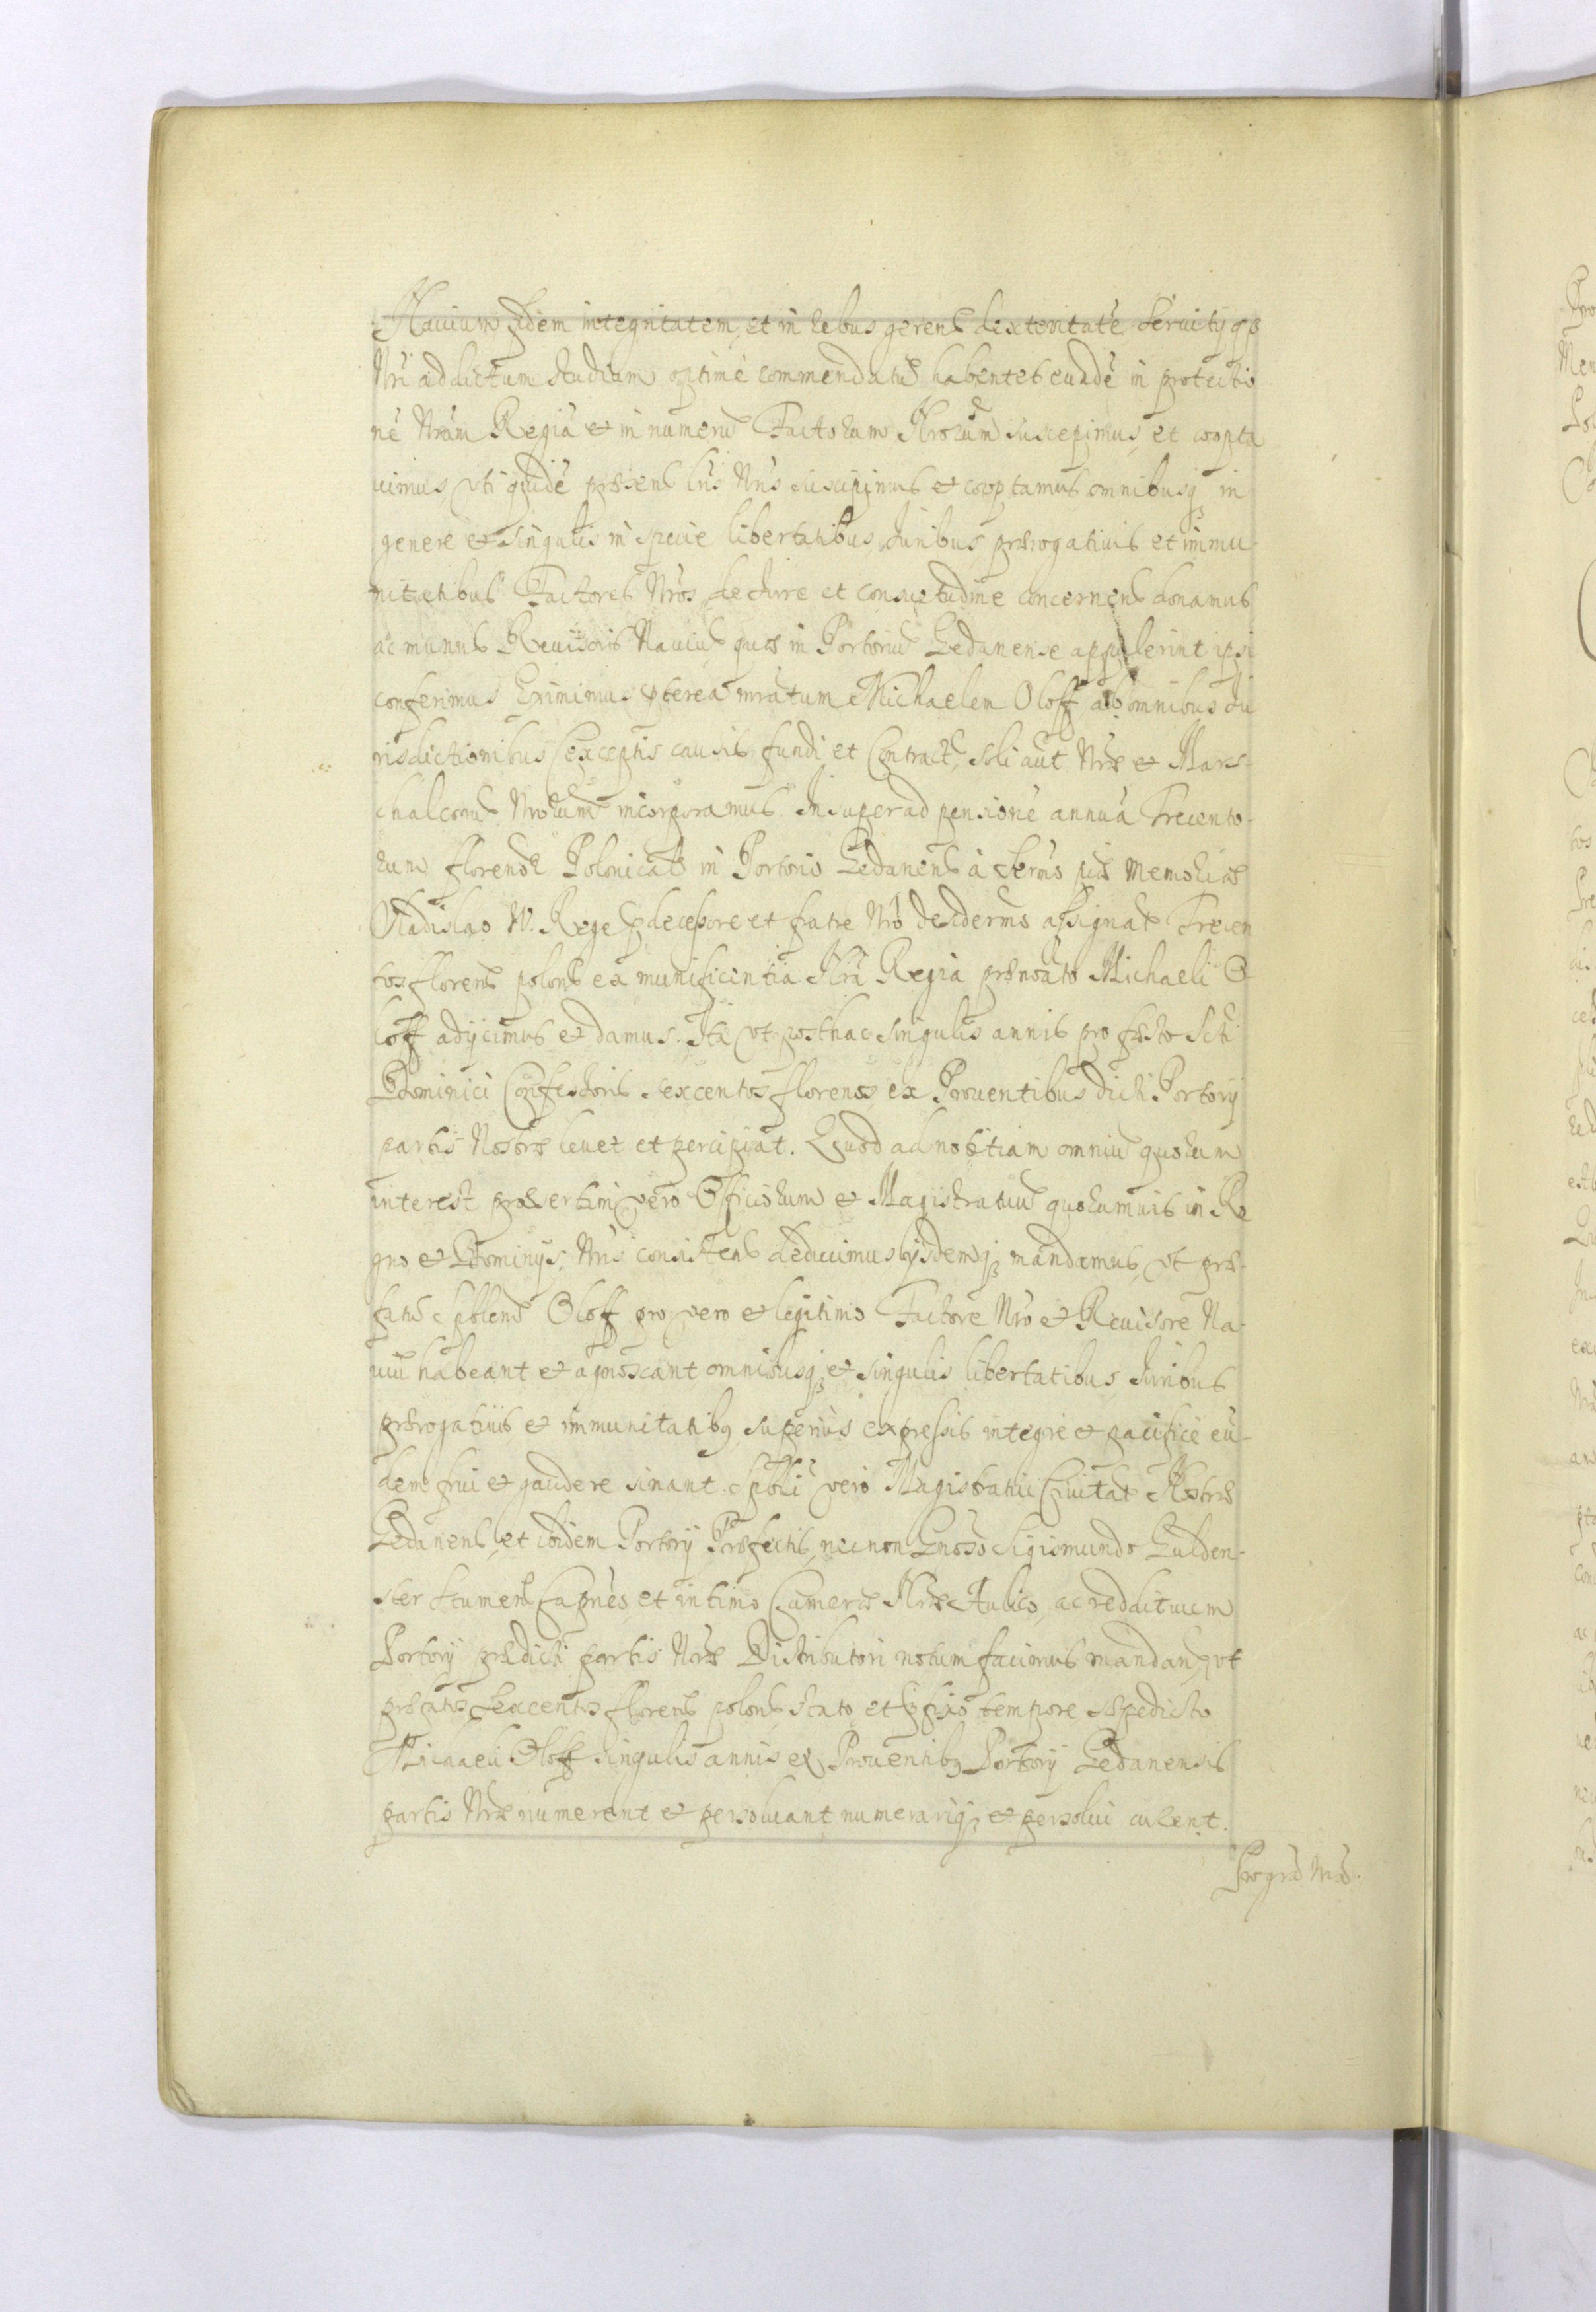 Nauium fidem integritatem, et in rebus gerend dexteritatē Seruitijqz
Nri addictum studium optimè commendatū habentes eundē in protectio
nē Nram Regiā et in numerū Factorum Nrorum suscepimus et coopta
uimus, vti quidē præsent lris Nris suscipimus et cooptamus omnibusqz in
genere et singulis in specie libertatibus, Juribus prærogatiuis et immu-
nitatibus Factores Nros de Jure et consuetudine concernent donamus
ac munus Reuisoris Nauiū quæ in Portoriū Gedanense appulerint ipsi
conferimus Eximimus pterea mratum Michaelem Oloff ab omnibus Ju
risdictionibus (exceptis causis fundi et Contract, soli aut Nræ et Mars-
chalcorū Nrorum incorporamus. Insuper ad pensionē annuā Trecento-
rum florenor Polonical in Portorio Gedanens à Sermo piæ memoriæ
Vladislao IV. Rege pdecessore et fratre Nro desidermo assignat Trecen
tos florens polons ex munificentia Nra Regia prænoato Michaeli O
loff adijcimus et damus. Ita vt posthac singulis annis pro festo Scti
Dominici Confessoris sexcentos florenos ex Prouentibus dicti Portorij
partis Nostræ leuet et percipiat. Quod ad notitiam omniū quorum
interest præsertim vero Officiorum et Magistratuū quorumuis in Re
gno et Dominijs Nris consistens deducimus ijsdemqz mandamus, vt præ-
fatū Spblem Oloff pro vero et legitimo Factore Nro et Reuisore Na-
uiū habeant et agnoscant omnibusqz et singulis libertatibus, Juribus
prærogatiuis et immunitatibq superius expressis integrè et pacificè eū-
dem frui et gaudere sinant. Spbli vero Magistratui Ciuitat Nostræ
Gedanens, et ibidem Portorij Præfectis, nec non Gnoso Sigismundo Gulden-
ster Stumens Capneo et intimo Cameræ Nræ Aulico, ac reddituum
Portorij prædicti partis Nræ Distributori notum facimus mandan, vt
præfatos Sexcentos florens polons stato et pfixo tempore sæpedicto
Michaeli Oloff singulis annis ex Prouentibq Portorij Gedanensis
partis Nræ numerent et persoluant numerariqz et persolui curent.
Pro gra Nra